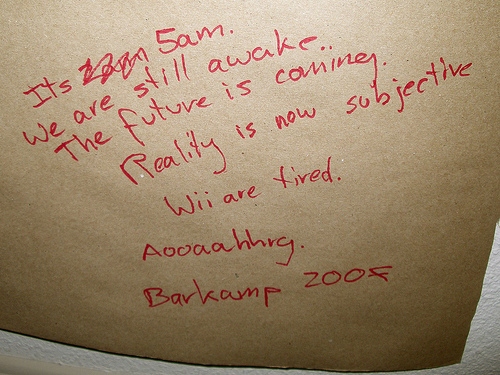 Its 5am.
We are still awake..
The future is coming.
Reality is now subjective
Wii are tired.
Aooaahhrg.
Barkamp